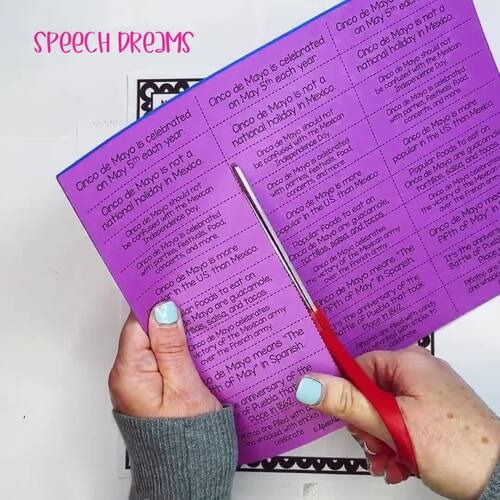 SPEECH DREAMS
Cinco de Mayo is celebrated
on May 5th each year.
Cinco de Mayo is not a
national holiday in Mexico.
Cinco de Mayo should not
be confused with the Mexican
Independence Day.
Cinco de Mayo is celebrated
with parties, festivals, food,
concerts, and more.
Cinco de Mayo is more
in the U.S. than Mexico.
Foods to eat on
de Mayo are guacamole,
salsa, and tacos.
de Mayo celebrates
victory of the Mexican army
over the French army.
de Mayo means "The
of May" in Spanish.
anniversary of the
of Puebla that
Place in 1862.
are filled with
whacked with sticks
celebrate
Cinco de Mayo is celebrated
on May 5th each year.
Cinco de Mayo is not a
national holiday in Mexico.
Cinco de Mayo should not
be confused with the Mexican
Independence Day.
Cinco de Mayo is celebrated
with parties, festivals, food,
concerts, and more.
Cinco de Mayo is more
popular in the U.S. than Mexico.
Popular Foods to eat on
Cinco de Mayo are guacamole,
tortillas, salsa, and tacos.
Cinco de Mayo celebrates
the victory of the Mexican army
over the French army.
Cinco de Mayo means "The
Fifth of May" in Spanish
It's the anniversary of the
Battle of Puebla that took
Place in 1862.
are filled with candy
with sticks to
Cinco de Mayo is not a
national holiday in Mexico.
Cinco de Mayo should not
be confused with the Mexican
Independence Day.
Cinco de Mayo is celebrated
with parties, festivals, food,
concerts, and more.
Cinco de Mayo is more
popular in the U.S. than Mexico
Popular Foods to eat
Cinco de Mayo are guacam
tortillas, salsa, and
Cinco de Mayo
the victory of the
over the French
Cinco de Mayo
Fifth of May"
It's the
Battle of
Pl
Piñatas are
and